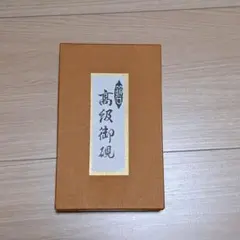 高級御硯